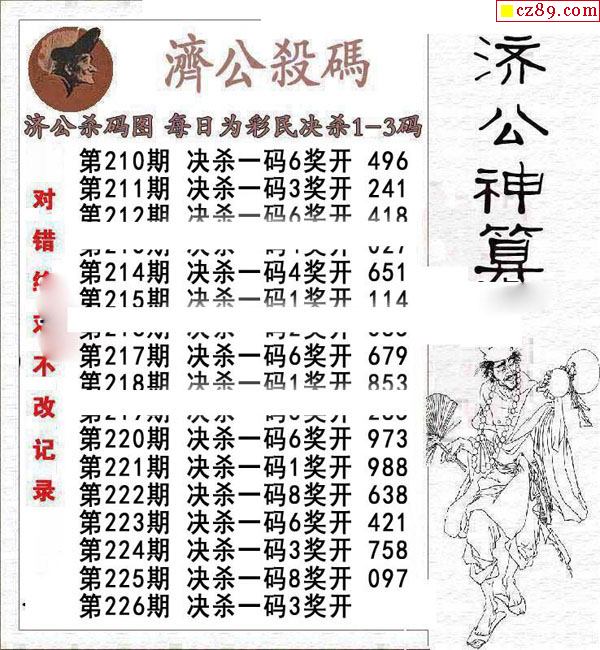 cz89.com
濟公殺碼
济公神算
济公杀码图 每日为彩民决杀1-3码
对错
不改记录
第210期 决杀一码6奖开 496
第211期 决杀一码3奖开 241
第212期 决杀一码6奖开 418
第214期 决杀一码4奖开 651
第215期 决杀一码1奖开 114
第217期 决杀一码6奖开 679
第218期 决杀一码1奖开 853
第220期 决杀一码6奖开 973
第221期 决杀一码1奖开 988
第222期 决杀一码8奖开 638
第223期 决杀一码6奖开 421
第224期 决杀一码3奖开 758
第225期 决杀一码8奖开 097
第226期 决杀一码3奖开